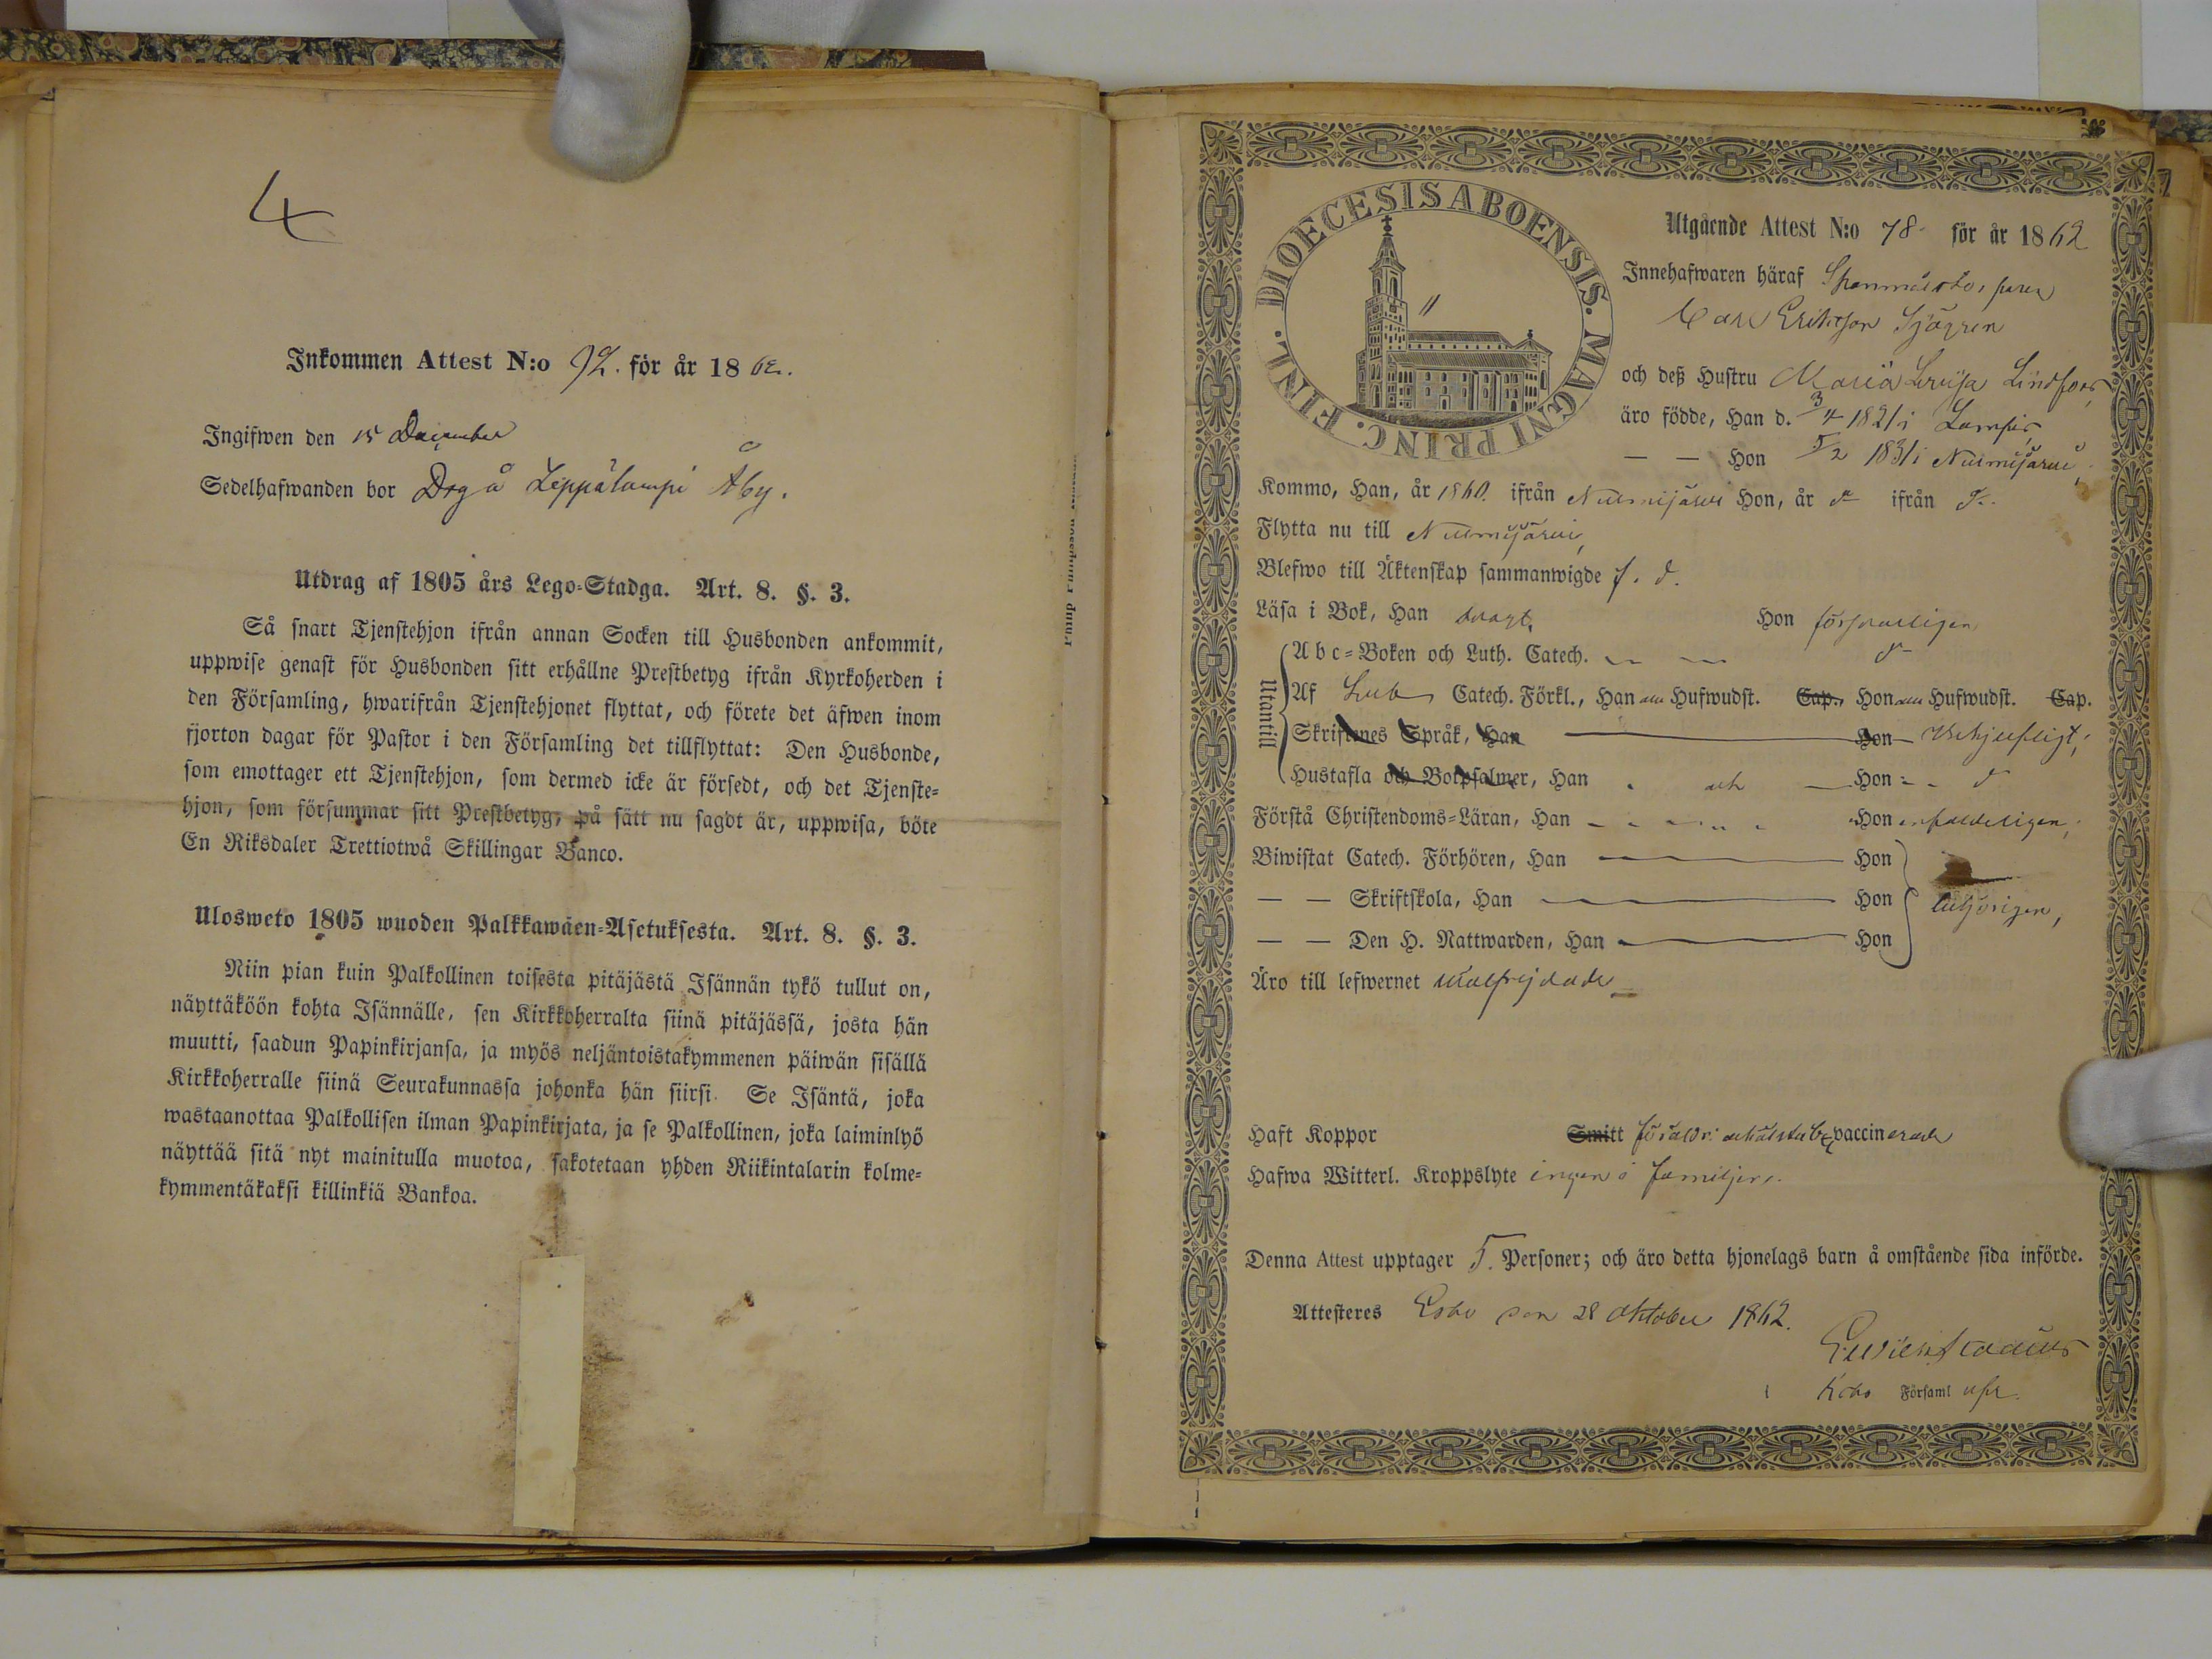 4
Inkommen Attest N:o 92. för år 1862.
Ingifwen den 15 December
Sedelhafwanden bor Drg å Leppälampi Åby.
Utdrag af 1805 års Lego-Stadga. Art. 8. §. 3.
Så snart Tjenstehjon ifrån annan Socken till Husbonden ankommit,
uppwise genast för Husbonden sitt erhållne Prestbetyg ifrån Kyrkoherden i
den Församling, hwarifrån Tjenstehjonet flyttat, och förete det äfwen inom
fjorton dagar för Pastor i den Församling det tillflyttat: Den Husbonde,
som emottager ett Tjenstehjon, som dermed icke är försedt, och det Tjenste-
hjon, som försummar sitt Prestbetyg, på sätt nu sagdt är, uppwisa, böte
En Riksdaler Trettiotwå Skillingar Banco.
Ulosweto 1805 wuoden Palkkawäen-Asetuksesta. Art. 8. §. 3.
Niin pian kuin Palkollinen toisesta pitäjästä Isännän tykö tullut on,
näyttäköön kohta Isännälle, sen Kirkkoherralta siinä pitäjässä, josta hän
muutti, saadun Papinkirjansa, ja myös neljäntoistakymmenen päiwän sisällä
Kirkkoherralle siinä Seurakunnassa johonka hän siirsi. Se Isäntä, joka
wastaanottaa Palkollisen ilman Papinkirjata, ja se Palkollinen, joka laiminlyö
näyttää sitä nyt mainitulla muotoa, sakotetaan yhden Riikintalarin kolme-
kymmentäkaksi killinkiä Bankoa.
DIOECESIS ABOENSIS. MAGNI PRINC. FINL.
Utgående Attest N:o 78 för år 1862
Innehafwaren häraf
Carl Ericsson Sjögren
och deß Hustru Maria Lovisa Lindfors,
äro födde, Han d. 3/4 1821 i Lampis,
— — Hon 5/2 1831 i Nurmijärvi,
Kommo, Han, år 1860. ifrån Nurmijärvi Hon, år d:o ifrån d:o
Flytta nu till Nurmijärvi,
Blefwo till Äktenskap sammanwigde f. d.
Läsa i Bok, Han svagt, Hon förswarligen
Utantill
Abc-Boken och Luth. Catech. d:o
Af Catech. Förkl., Han Hufwudst. Cap. Hon Hufwudst. Cap.
Skriftenes Språk, Han Hon
Hustafla och Botpsalmer, Han Hon
Förstå Christendoms-Läran, Han Hon enfaldeligen,
Biwistat Catech. Förhören, Han Hon
— — Skriftskola, Han Hon
— — Den H. Nattwarden, Han Hon
behörigen,
Äro till lefwernet wälfrejdade
Haft Koppor Smitt vaccinerade
Hafwa Witterl. Kroppslyte ingen i familjen.
Denna Attest upptager 5. Personer; och äro detta hjonelags barn å omstående sida införde.
Attesteres Esbo den 28 oktober 1862.
i Esbo Församl